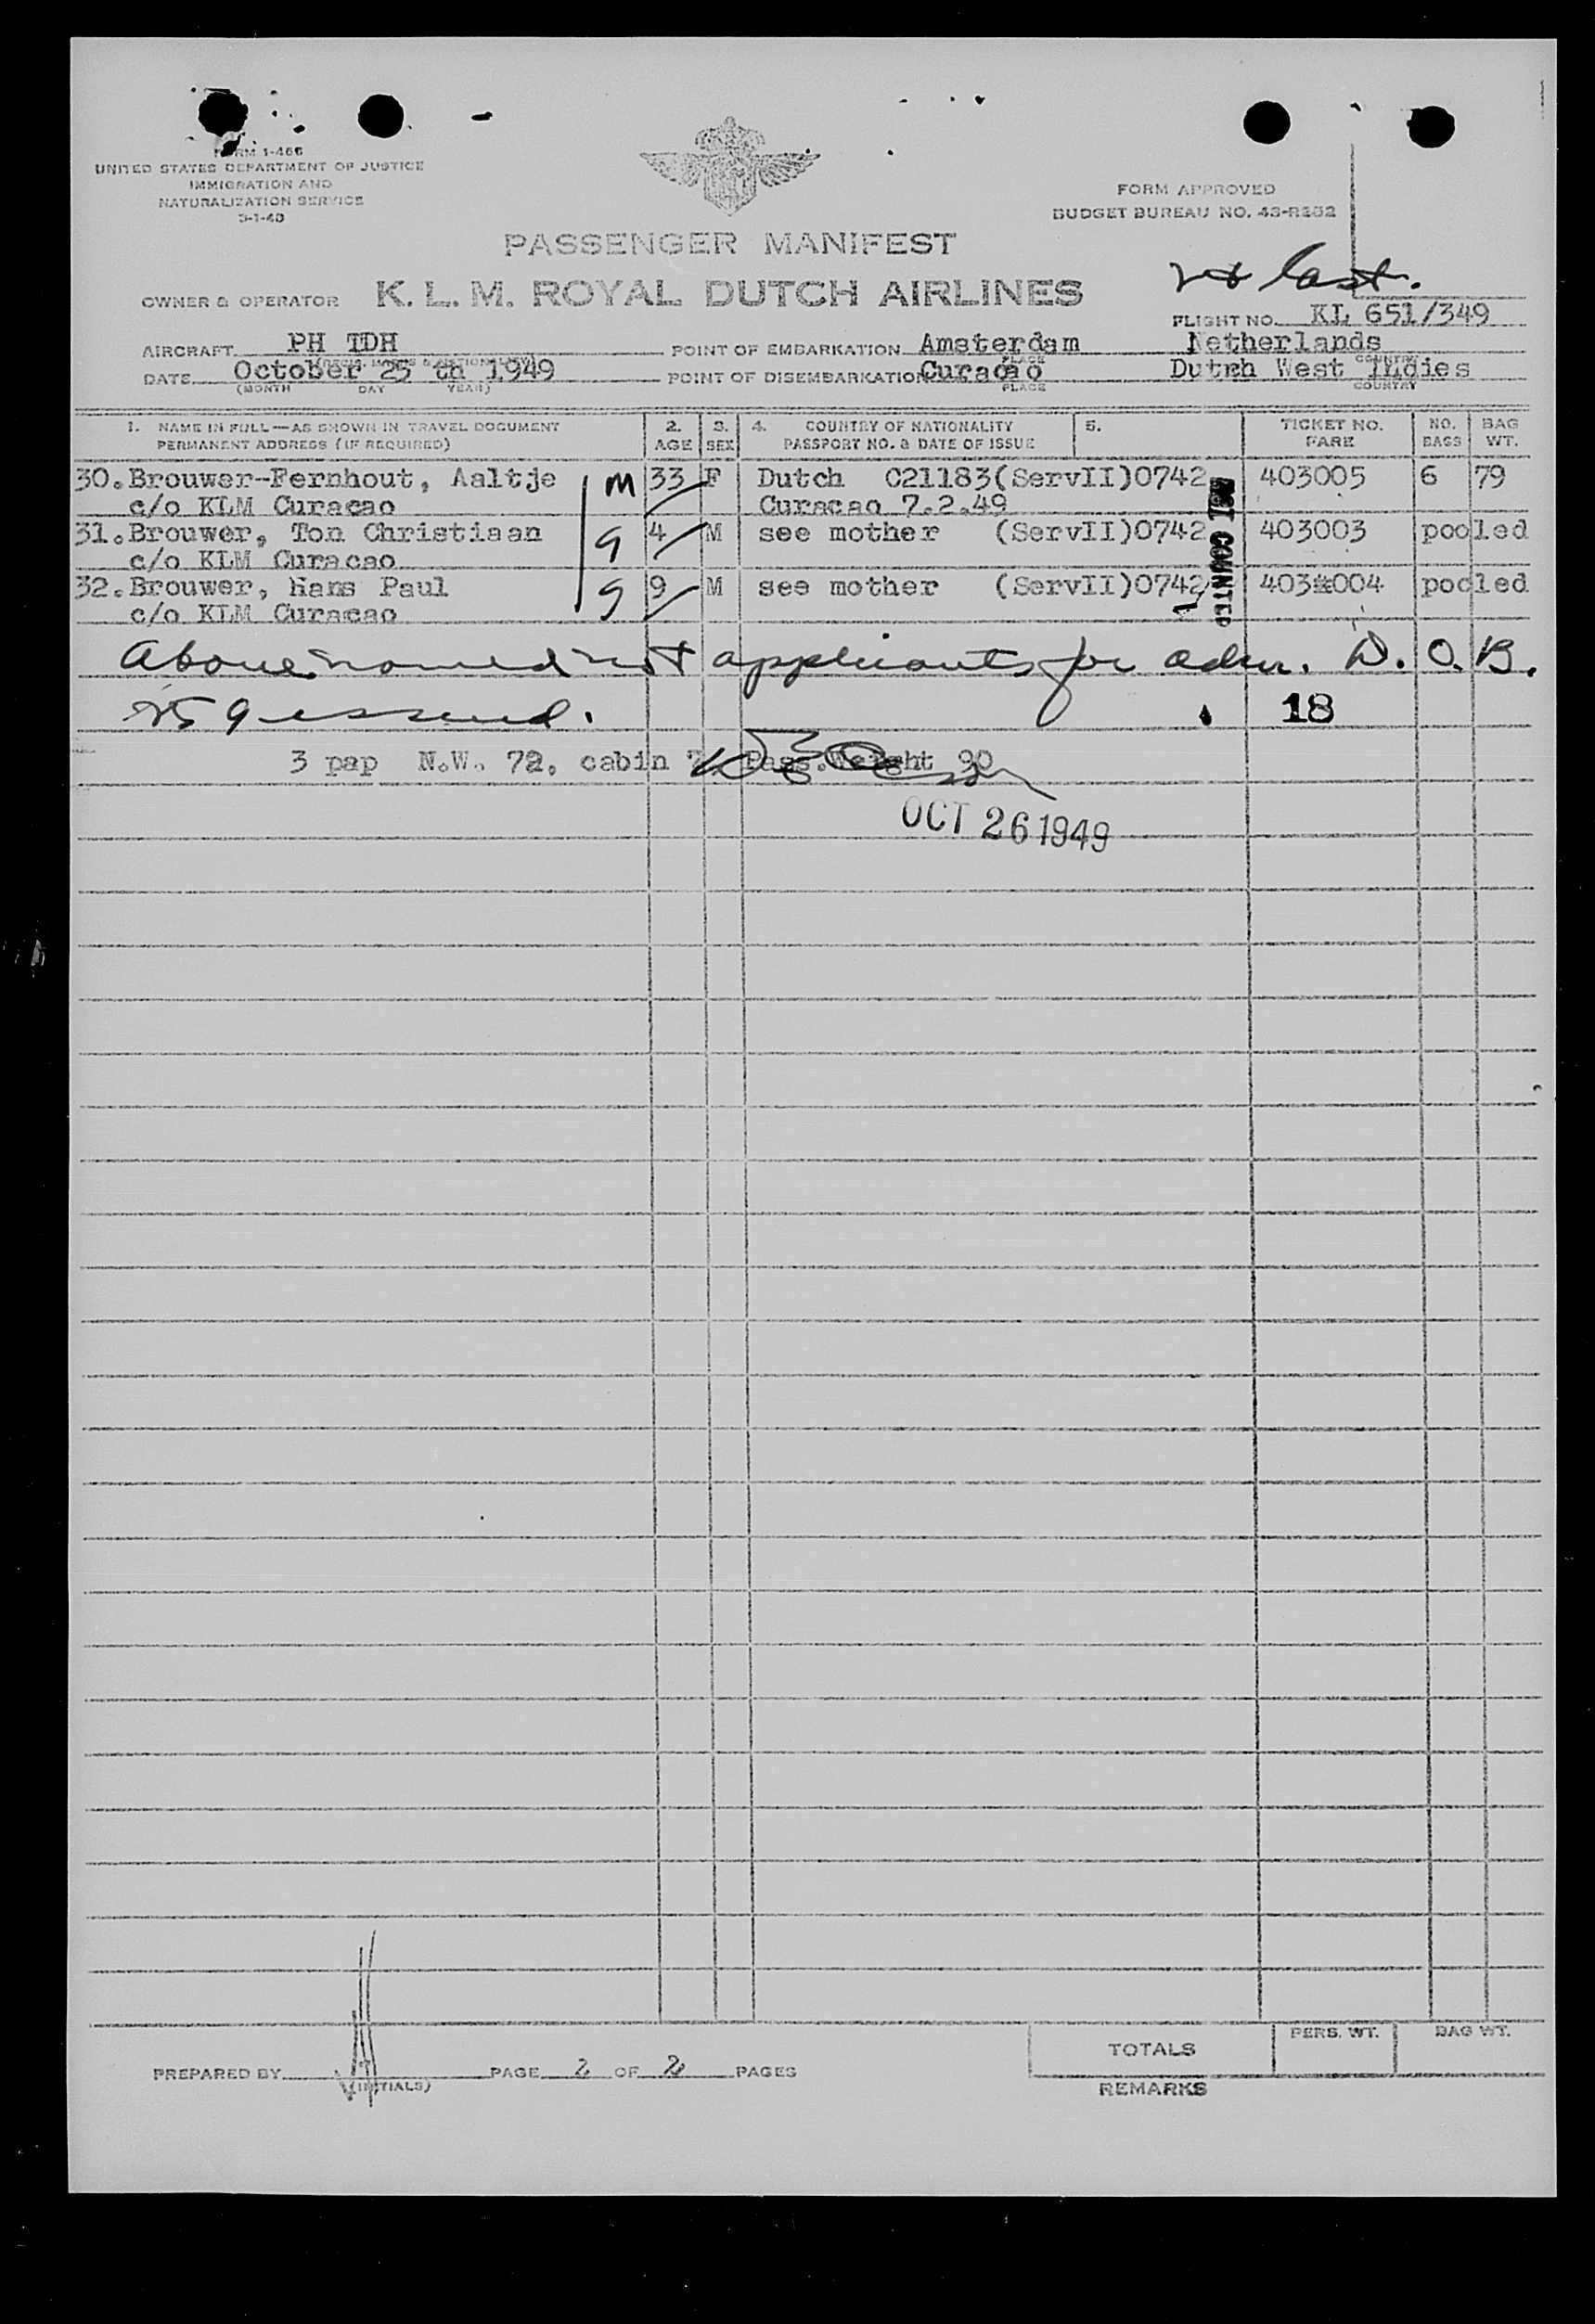 FORM 1-466
UNITED STATES DEPARTMENT OF JUSTICE
IMMIGRATION AND
NATURALIZATION SERVICE
FORM APPROVED
BUDGET BUREAU NO. 43-R232
PASSENGER MANIFEST
OWNER & OPERATOR K. L. M. ROYAL DUTCH AIRLINES
FLIGHT NO. KL 651/349
AIRCRAFT PH TDH POINT OF EMBARKATION Amsterdam Netherlands
PLACE COUNTRY
DATE October 25 th 1949 POINT OF DISEMBARKATION Curacao Dutch West Indies
(MONTH DAY YEAR) PLACE COUNTRY
1. NAME IN FULL—AS SHOWN IN TRAVEL DOCUMENT 2. 3. 4. COUNTRY OF NATIONALITY 5. TICKET NO. NO. BAG
PERMANENT ADDRESS (IF REQUIRED) AGE SEX PASSPORT NO. & DATE OF ISSUE FARE BAGS WT.
30. Brouwer-Fernhout, Aaltje M 33 F Dutch C21183(ServII)0742 403005 6 79
c/o KLM Curacao Curacao 7.2.49
31. Brouwer, Ton Christiaan 9 4 M see mother (ServII)0742 403003 pooled
c/o KLM Curacao
32. Brouwer, Hans Paul 9 9 M see mother (ServII)0742 403004 pooled
c/o KLM Curacao
NOT COUNTED
Above named not applicants for adm. D. O. B.
259 issued. 18
3 pap N.W. 72, cabin 7 Pass.Weight 90
OCT 26 1949
TOTALS PERS. WT. BAG WT.
PREPARED BY (INITIALS) PAGE 2 OF 2 PAGES
REMARKS